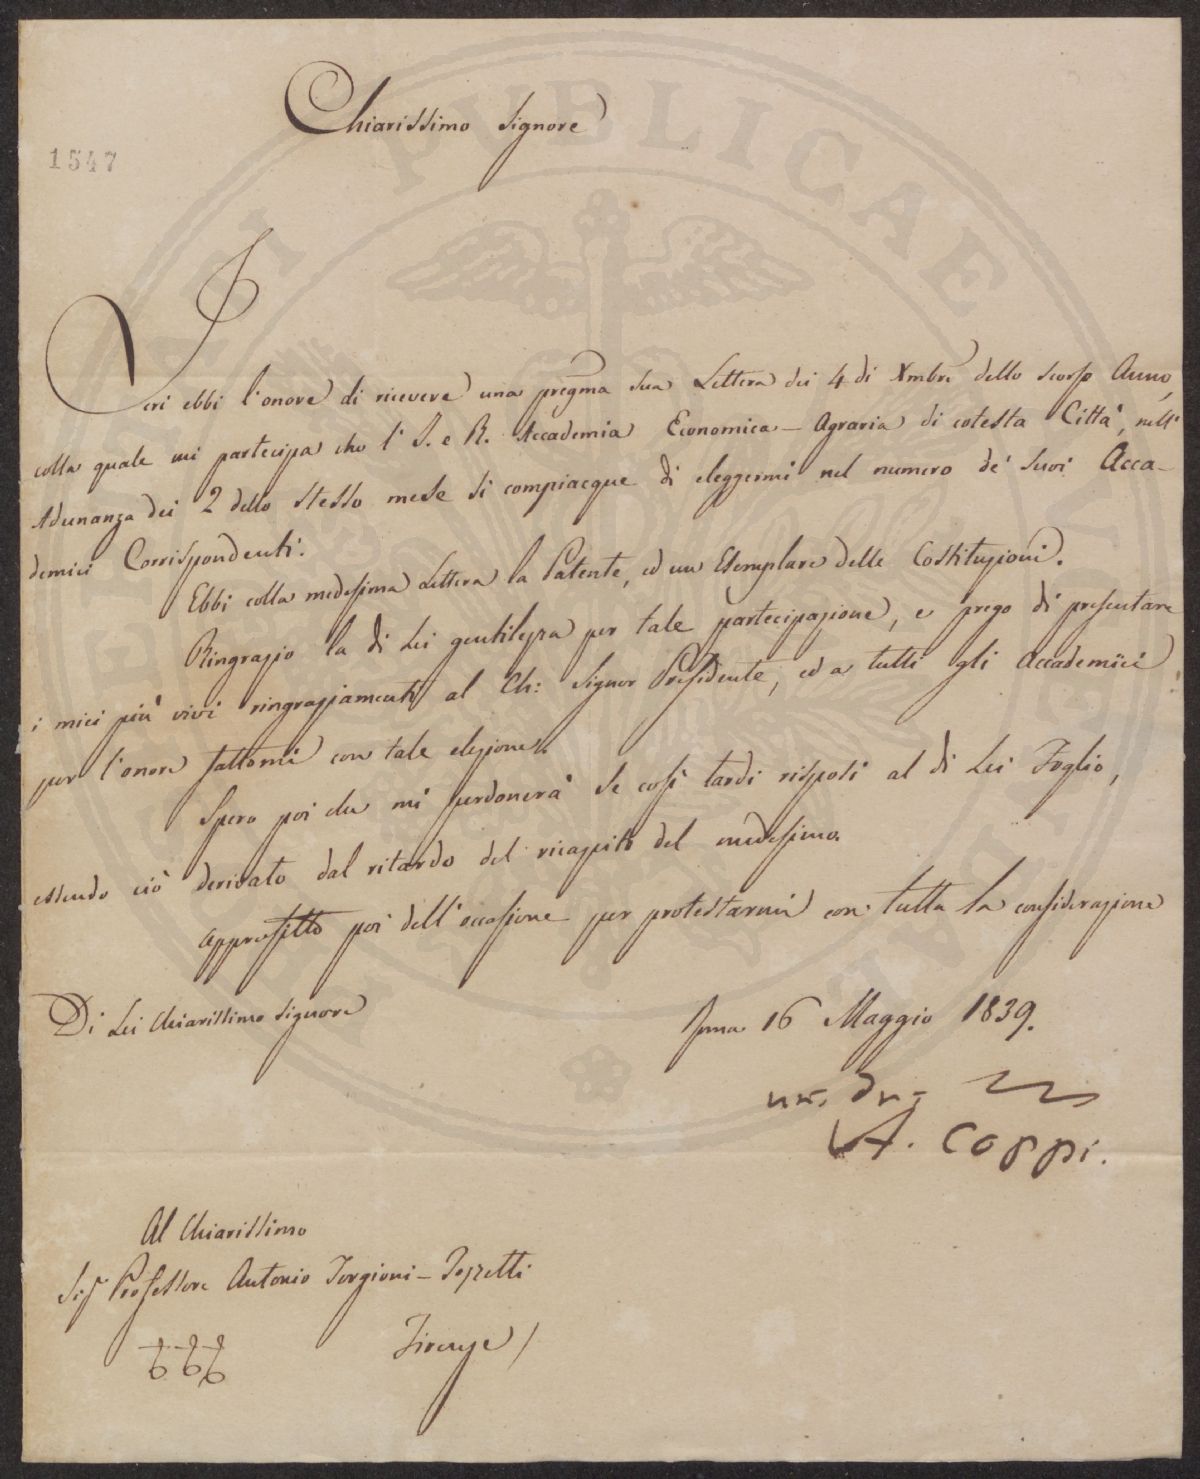 Chiarissimo Signore
1547
Ieri ebbi l'onore di ricevere una pregma sua Lettera dei 4 di Xmbre dello scorso Anno,
colla quale mi partecipa che l'I. e R. Accademia Economica-Agraria di cotesta Città, nell'
Adunanza dei 2 dello stesso mese si compiacque di eleggermi nel numero de' suoi Acca-
demici Corrispondenti.
Ebbi colla medesima Lettera la Patente, ed un Esemplare delle Costituzioni.
Ringrazio la di Lei gentilezza per tale partecipazione, e prego di presentare
i miei più vivi ringraziamenti al Ch: Signor Presidente, ed a tutti gli Accademici
per l'onore fattomi con tale elezione.
Spero poi che mi perdonerà se così tardi risposi al di Lei Foglio,
essendo ciò derivato dal ritardo del ricapito del medesimo.
Approfitto poi dell'occasione per protestarmi con tutta la considerazione
Di Lei Chiarissimo Signore
16 Maggio 1839.
A. Coppi.
Al Chiarissimo
Sigr Professore Antonio Targioni-Tozzetti
Firenze